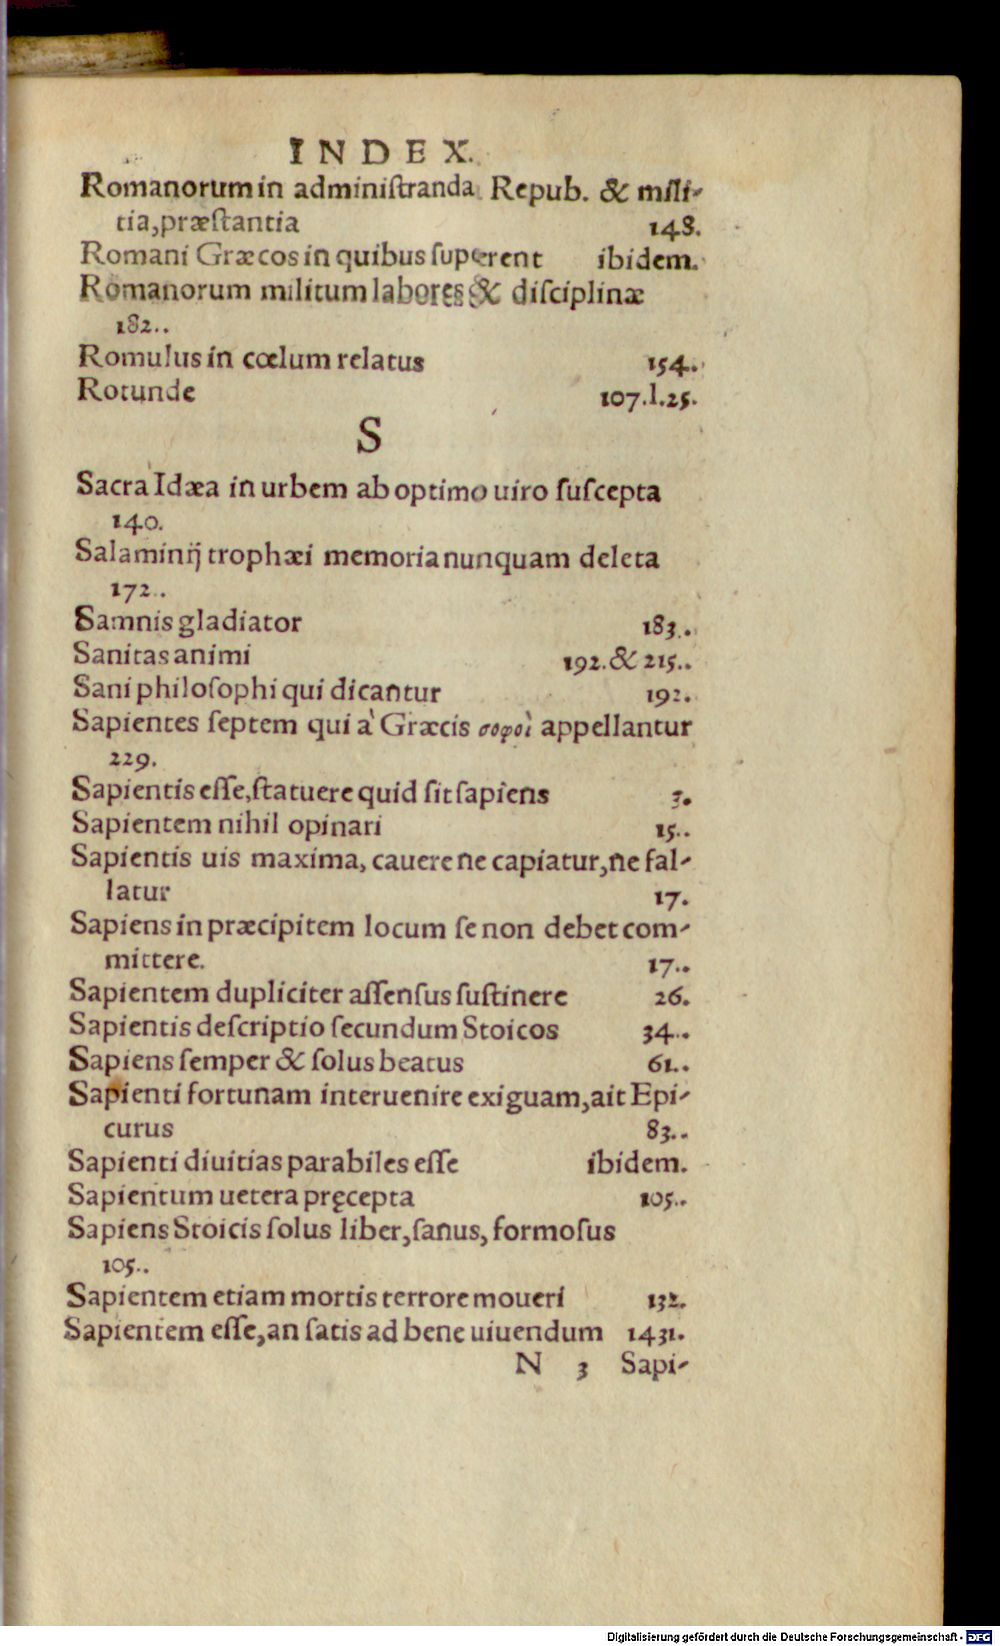 INDEX.
Romanorum in adminiſtranda Repub. & mili-
tia, præſtantia 148.
Romani Græcos in quibus ſuperent ibidem.
Romanorum militum labores & diſciplinæ
182..
Romulus in cœlum relatus 154.
Rotunde 107.l.25.
S
Sacra Idæa in urbem ab optimo uiro ſuſcepta
140.
Salaminij trophæi memoria nunquam deleta
172..
Samnis gladiator 183..
Sanitas animi 192.& 215..
Sani philoſophi qui dicantur 192.
Sapientes ſeptem qui à Græcis σοφοὶ appellantur
229.
Sapientis eſſe, ſtatuere quid ſit ſapiens 3.
Sapientem nihil opinari 15..
Sapientis uis maxima, cauere ne capiatur, ne fal-
latur 17.
Sapiens in præcipitem locum ſe non debet com-
mittere. 17..
Sapientem dupliciter aſſenſus ſuſtinere 26.
Sapientis deſcriptio ſecundum Stoicos 34..
Sapiens ſemper & ſolus beatus 61..
Sapienti fortunam interuenire exiguam, ait Epi-
curus 83..
Sapienti diuitias parabiles eſſe ibidem.
Sapientum uetera pręcepta 105..
Sapiens Stoicis ſolus liber, ſanus, formoſus
105..
Sapientem etiam mortis terrore moueri 132.
Sapientem eſſe, an ſatis ad bene uiuendum 1431.
N 3 Sapi-
Digitalisierung gefördert durch die Deutsche Forschungsgemeinschaft - DFG